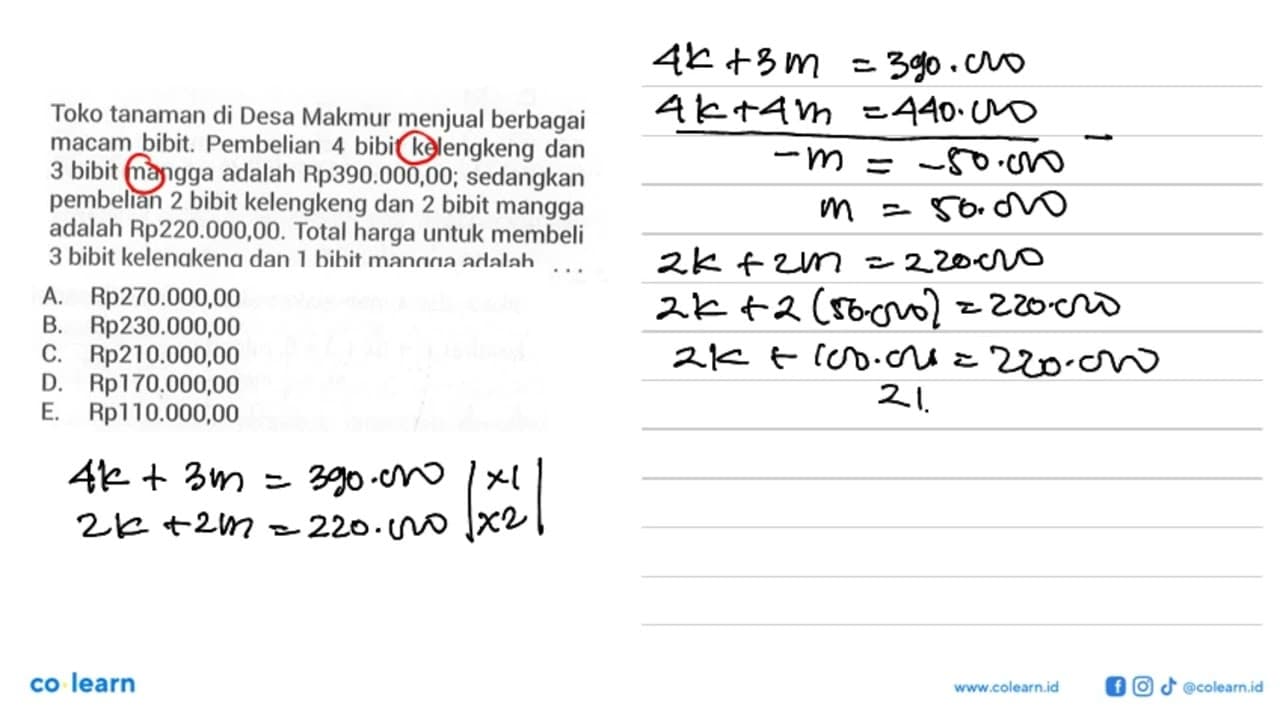 Toko tanaman di Desa Makmur menjual berbagai
macam bibit. Pembelian 4 bibit kelengkeng dan
3 bibit mangga adalah Rp390.000,00; sedangkan
pembelian 2 bibit kelengkeng dan 2 bibit mangga
adalah Rp220.000,00. Total harga untuk membeli
3 bibit kelengkeng dan 1 bibit mangga adalah ...
A. Rp270.000,00
B. Rp230.000,00
C. Rp210.000,00
D. Rp170.000,00
E. Rp110.000,00
4k + 3m = 390.000 | x1 |
2k + 2m = 220.000 | x2 |
4k + 3m = 390.000
4k + 4m = 440.000 -
-m = -50.000
m = 50.000
2k + 2m = 220.000
2k + 2 (50.000) = 220.000
2k + 100.000 = 220.000
co learn
www.colearn.id
@colearn.id